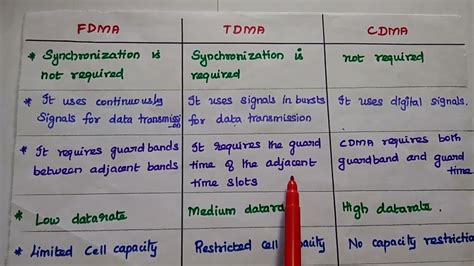 FDMA TDMA CDMA
* Synchronization is not required
Synchronization is required
not required
* It uses continuously Signals for data transmission
It uses signals in bursts for data transmission
It uses digital signals.
* It requires guard bands between adjacent bands
It requires the guard time of the adjacent time slots
CDMA requires both guardband and guard time
* Low datarate
Medium datara
High datarate.
* Limited Cell capacity
Restricted Cell capacity
No capacity restri